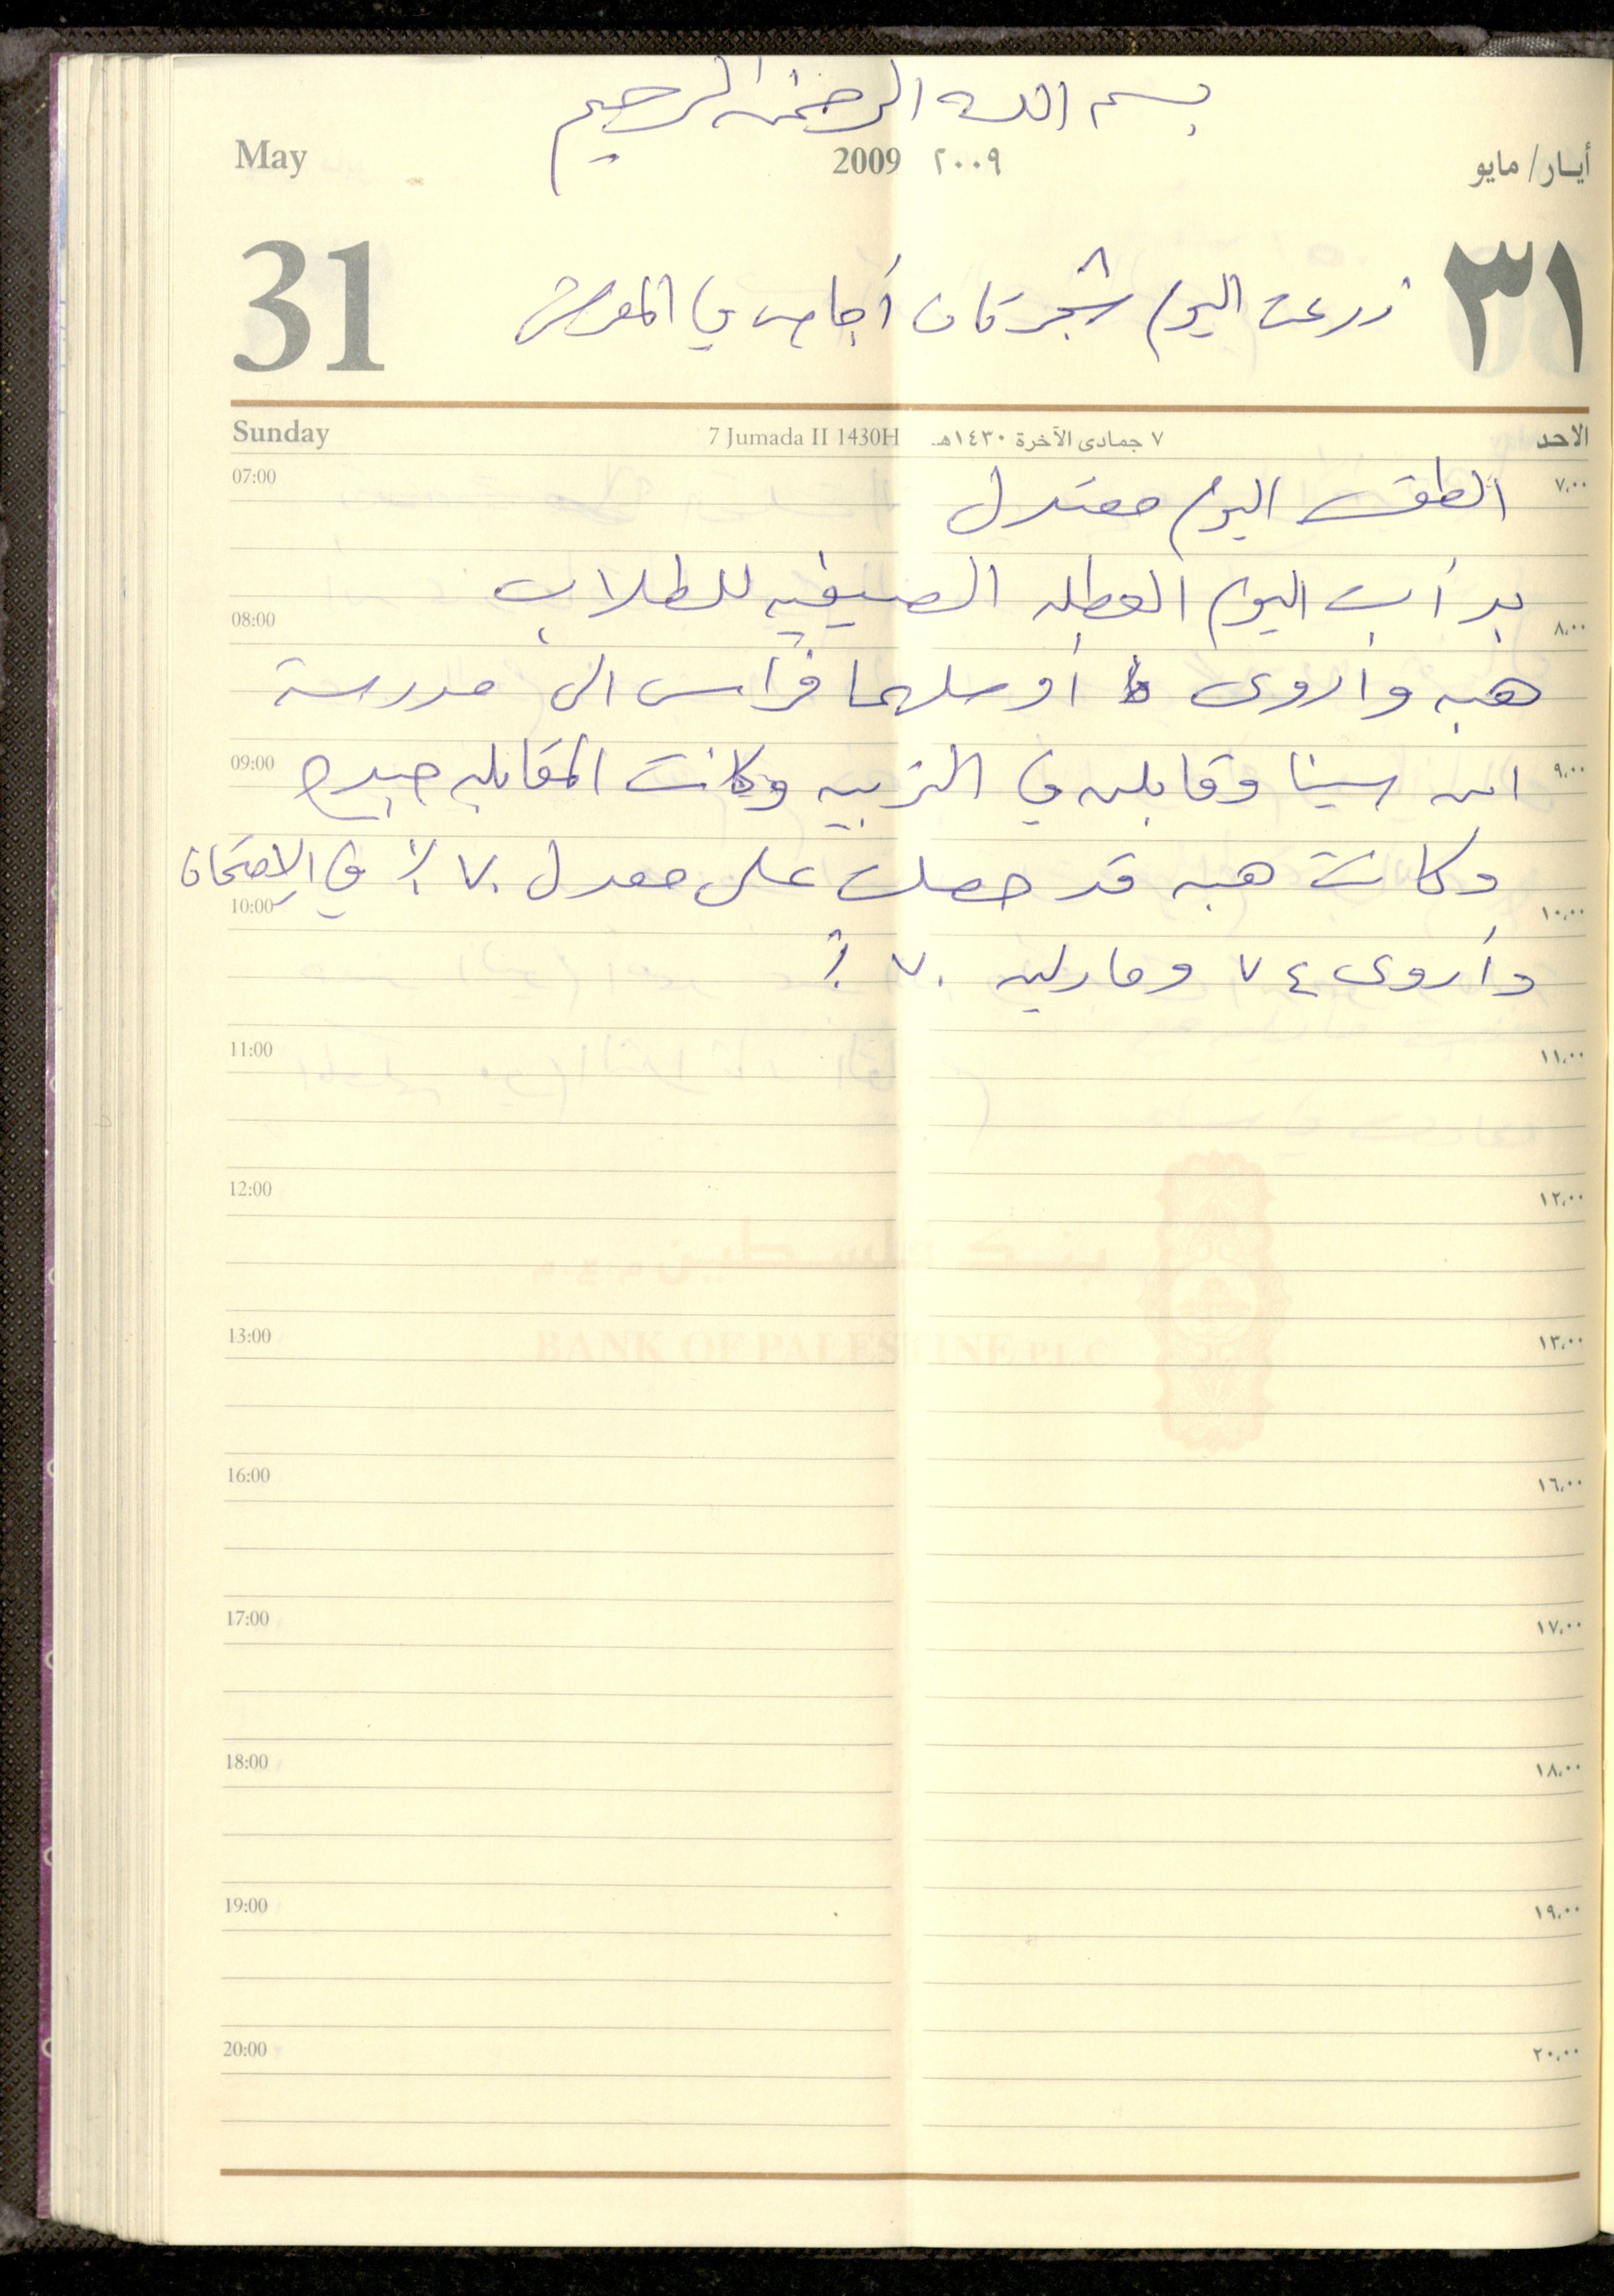 بسم الله الرحمن الرحيم
May 2009 ٢٠٠٩ أيـار/ مايو
31 ٣١
زرعت اليوم شجرتان أجاص في المعرش
Sunday 7 Jumada II 1430H ٧ جمادى الآخرة ١٤٣٠هـ الاحد
07:00 ٧،٠٠
الطقس اليوم معتدل
بدأت اليوم العطله الصيفيه للطلاب
08:00 ٨،٠٠
هبه واروى أوصلهما فراس الى مدرسة
09:00 ٩،٠٠
ابن سينا وقابلن في التربيه وكانت المقابله جيده
وكانت هبه قد حصلت على معدل ٧٠٪ في الامتحان
10:00 ١٠،٠٠
وأروى ٧٤ وماريه ٧٠٪
11:00 ١١،٠٠
12:00 ١٢،٠٠
بنك فلسطين
13:00 ١٣،٠٠
BANK OF PALESTINE PLC
16:00 ١٦،٠٠
17:00 ١٧،٠٠
18:00 ١٨،٠٠
19:00 ١٩،٠٠
20:00 ٢٠،٠٠